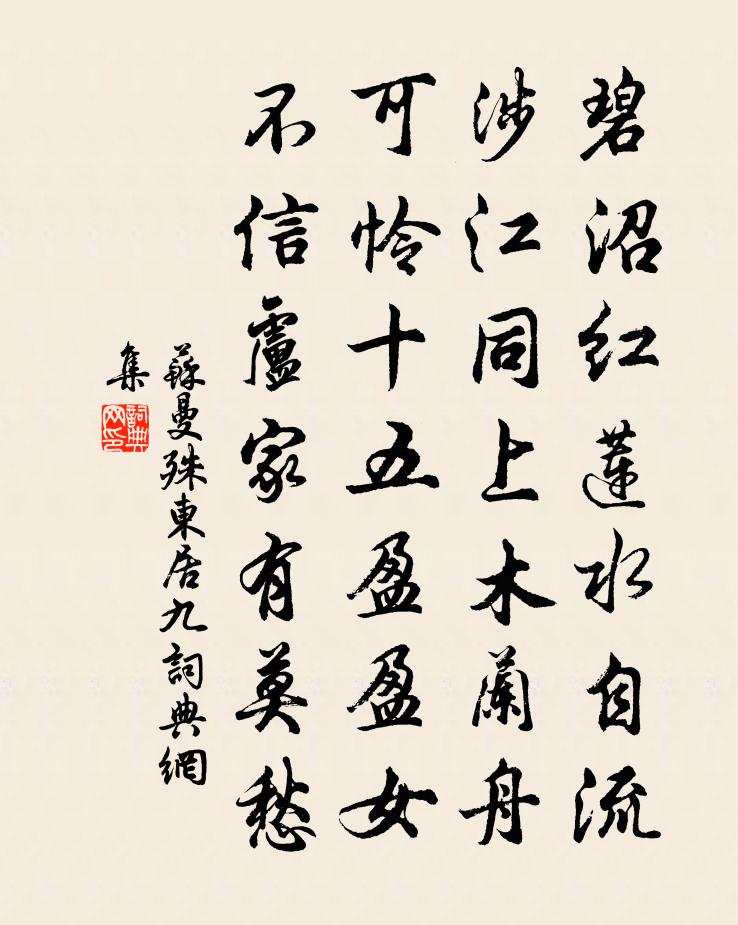 碧沼紅蓮水自流
涉江同上木蘭舟
可憐十五盈盈女
不信盧家有莫愁
蘇曼殊東居九詞典網
集
詞典
网印